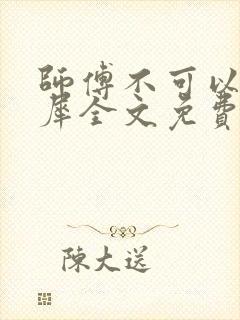 師傅不可以
犀全文免費
陳大送